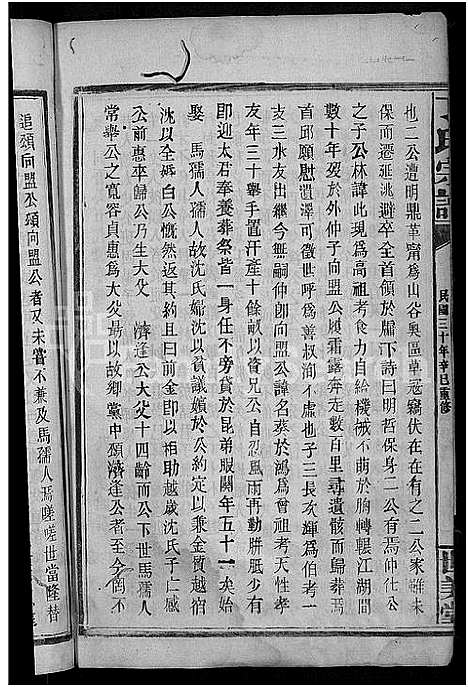 氏宗譜
民國三十年辛巳重修
世美堂
也二公遭明鼎革甯爲山谷奥區草冦竊伏在在有之二公家雖未
保而遷延逃避卒全首領於牖下詩曰明哲保身二公有焉仲仕公
之子公林諱此現公爲高祖考食力自給機械不萌於胸轉輾江湖間
數十年歿於外仲子向盟公履霜露奔走數百里尋遺骸而歸葬焉
首邱願慰遺澤可徵世呼爲善权洵不虛也子三長次輝爲伯考一
友三水友出繼今無嗣仲卽向盟公諱名葵於鴻爲曾祖考天性孝
友年三十舉手置汗產十餘畝以資兄公自忍風雨再動胼胝少有
卽迎太君奉養葬祭皆一身任不旁貸於昆弟服闋年五十一矣始
娶 馬孺人孺人故沈氏婦沈以貧議嬪於公約定以兼金質越宿
沈以全婚白公慨然返其約且曰前金卽以相助越歲沈氏子亡感
公前惠率歸公乃生大父 濟逢公大父十四齡而公下世馬孺人
常舉公之寬容貞惠爲大父最以故鄉黨中頌濟逢公者至今猶不
追頌向盟公頌向盟公者又未嘗不兼及馬孺人焉嗟嗟世當隆替